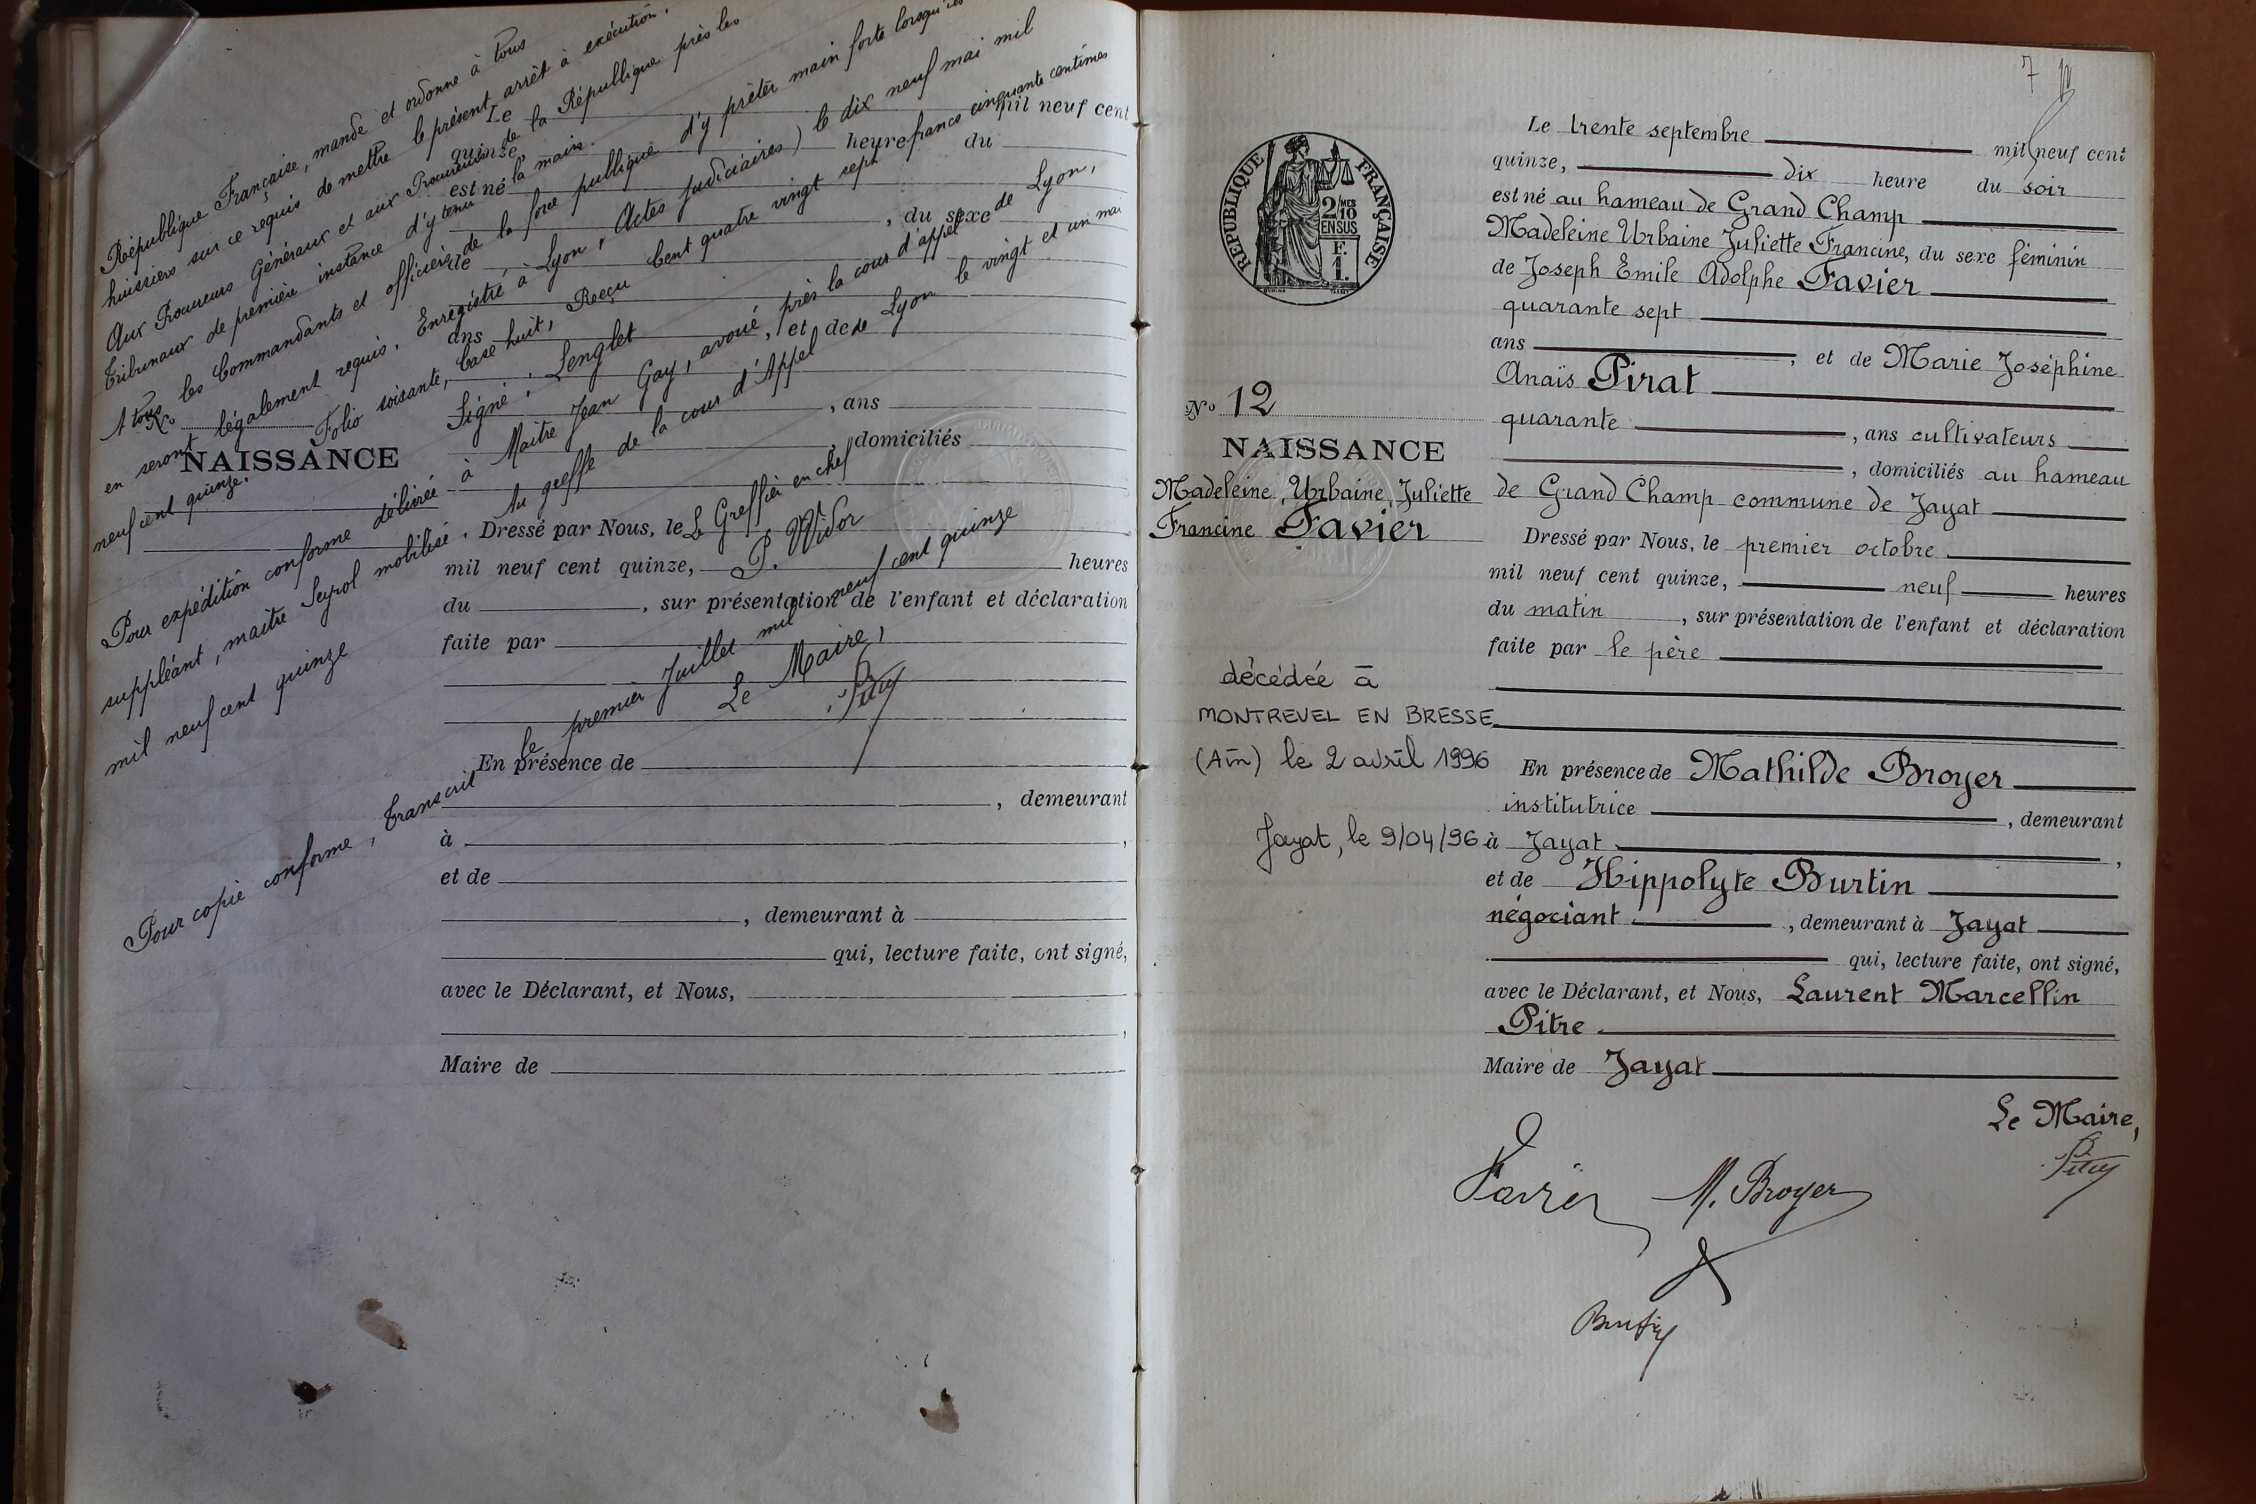 République Française, mande et ordonne à tous
huissiers sur ce requis de mettre le présent arrêt à exécution.
Aux Procureurs Généraux et aux Procureurs de la République près les
Tribunaux de première instance d'y tenir la main.
A tous les Commandants et officiers de la force publique d'y prêter main forte lorsqu'ils
en seront légalement requis. Enregistré à Lyon, (Actes judiciaires) le dix neuf mai mil
neuf cent quinze. Folio soisante, Case huit, Reçu Cent quatre vingt sept francs cinquante centimes
Signé: Lenglet
Pour expédition conforme délivrée à Maitre Jean Gay, avoué près la cour d'appel de Lyon,
suppléant, maitre Seyrol mobilisé. Au greffe de la cour d'Appel de Lyon le vingt et un mai
mil neuf cent quinze
Le Greffier en chef
P. Widor
Pour copie conforme, Transcrit le premier Juillet mil neuf cent quinze
Le Maire,
Le mil neuf cent
quinze, heure du
est né
, du sexe
de
ans , et de
No
NAISSANCE
, ans
, domiciliés
Dressé par Nous, le
mil neuf cent quinze, heures
du , sur présentation de l'enfant et déclaration
faite par
En présence de
, demeurant
à ,
et de
, demeurant à
qui, lecture faite, ont signé,
avec le Déclarant, et Nous,
,
Maire de
7
RÉPUBLIQUE FRANÇAISE
2/10
EN SUS
F.
1.
No 12
NAISSANCE
Madeleine, Urbaine, Juliette
Francine Favier
décédée à
MONTREVEL EN BRESSE
(Ain) le 2 avril 1996
Jayat, le 9/04/96
Le trente septembre mil neuf cent
quinze, dix heure du soir
est né au hameau de Grand Champ
Madeleine Urbaine Juliette Francine, du sexe féminin
de Joseph Emile Adolphe Favier
quarante sept
ans , et de Marie Joséphine
Anaïs Pirat
quarante , ans cultivateurs
, domiciliés au hameau
de Grand Champ commune de Jayat
Dressé par Nous, le premier octobre
mil neuf cent quinze, neuf heures
du matin , sur présentation de l'enfant et déclaration
faite par le père
En présence de Mathilde Broyer
institutrice , demeurant
à Jayat ,
et de Hippolyte Burtin
négociant , demeurant à Jayat
qui, lecture faite, ont signé,
avec le Déclarant, et Nous, Laurent Marcellin
Pitre
Maire de Jayat
Le Maire,
Favier M. Broyer
Burtin